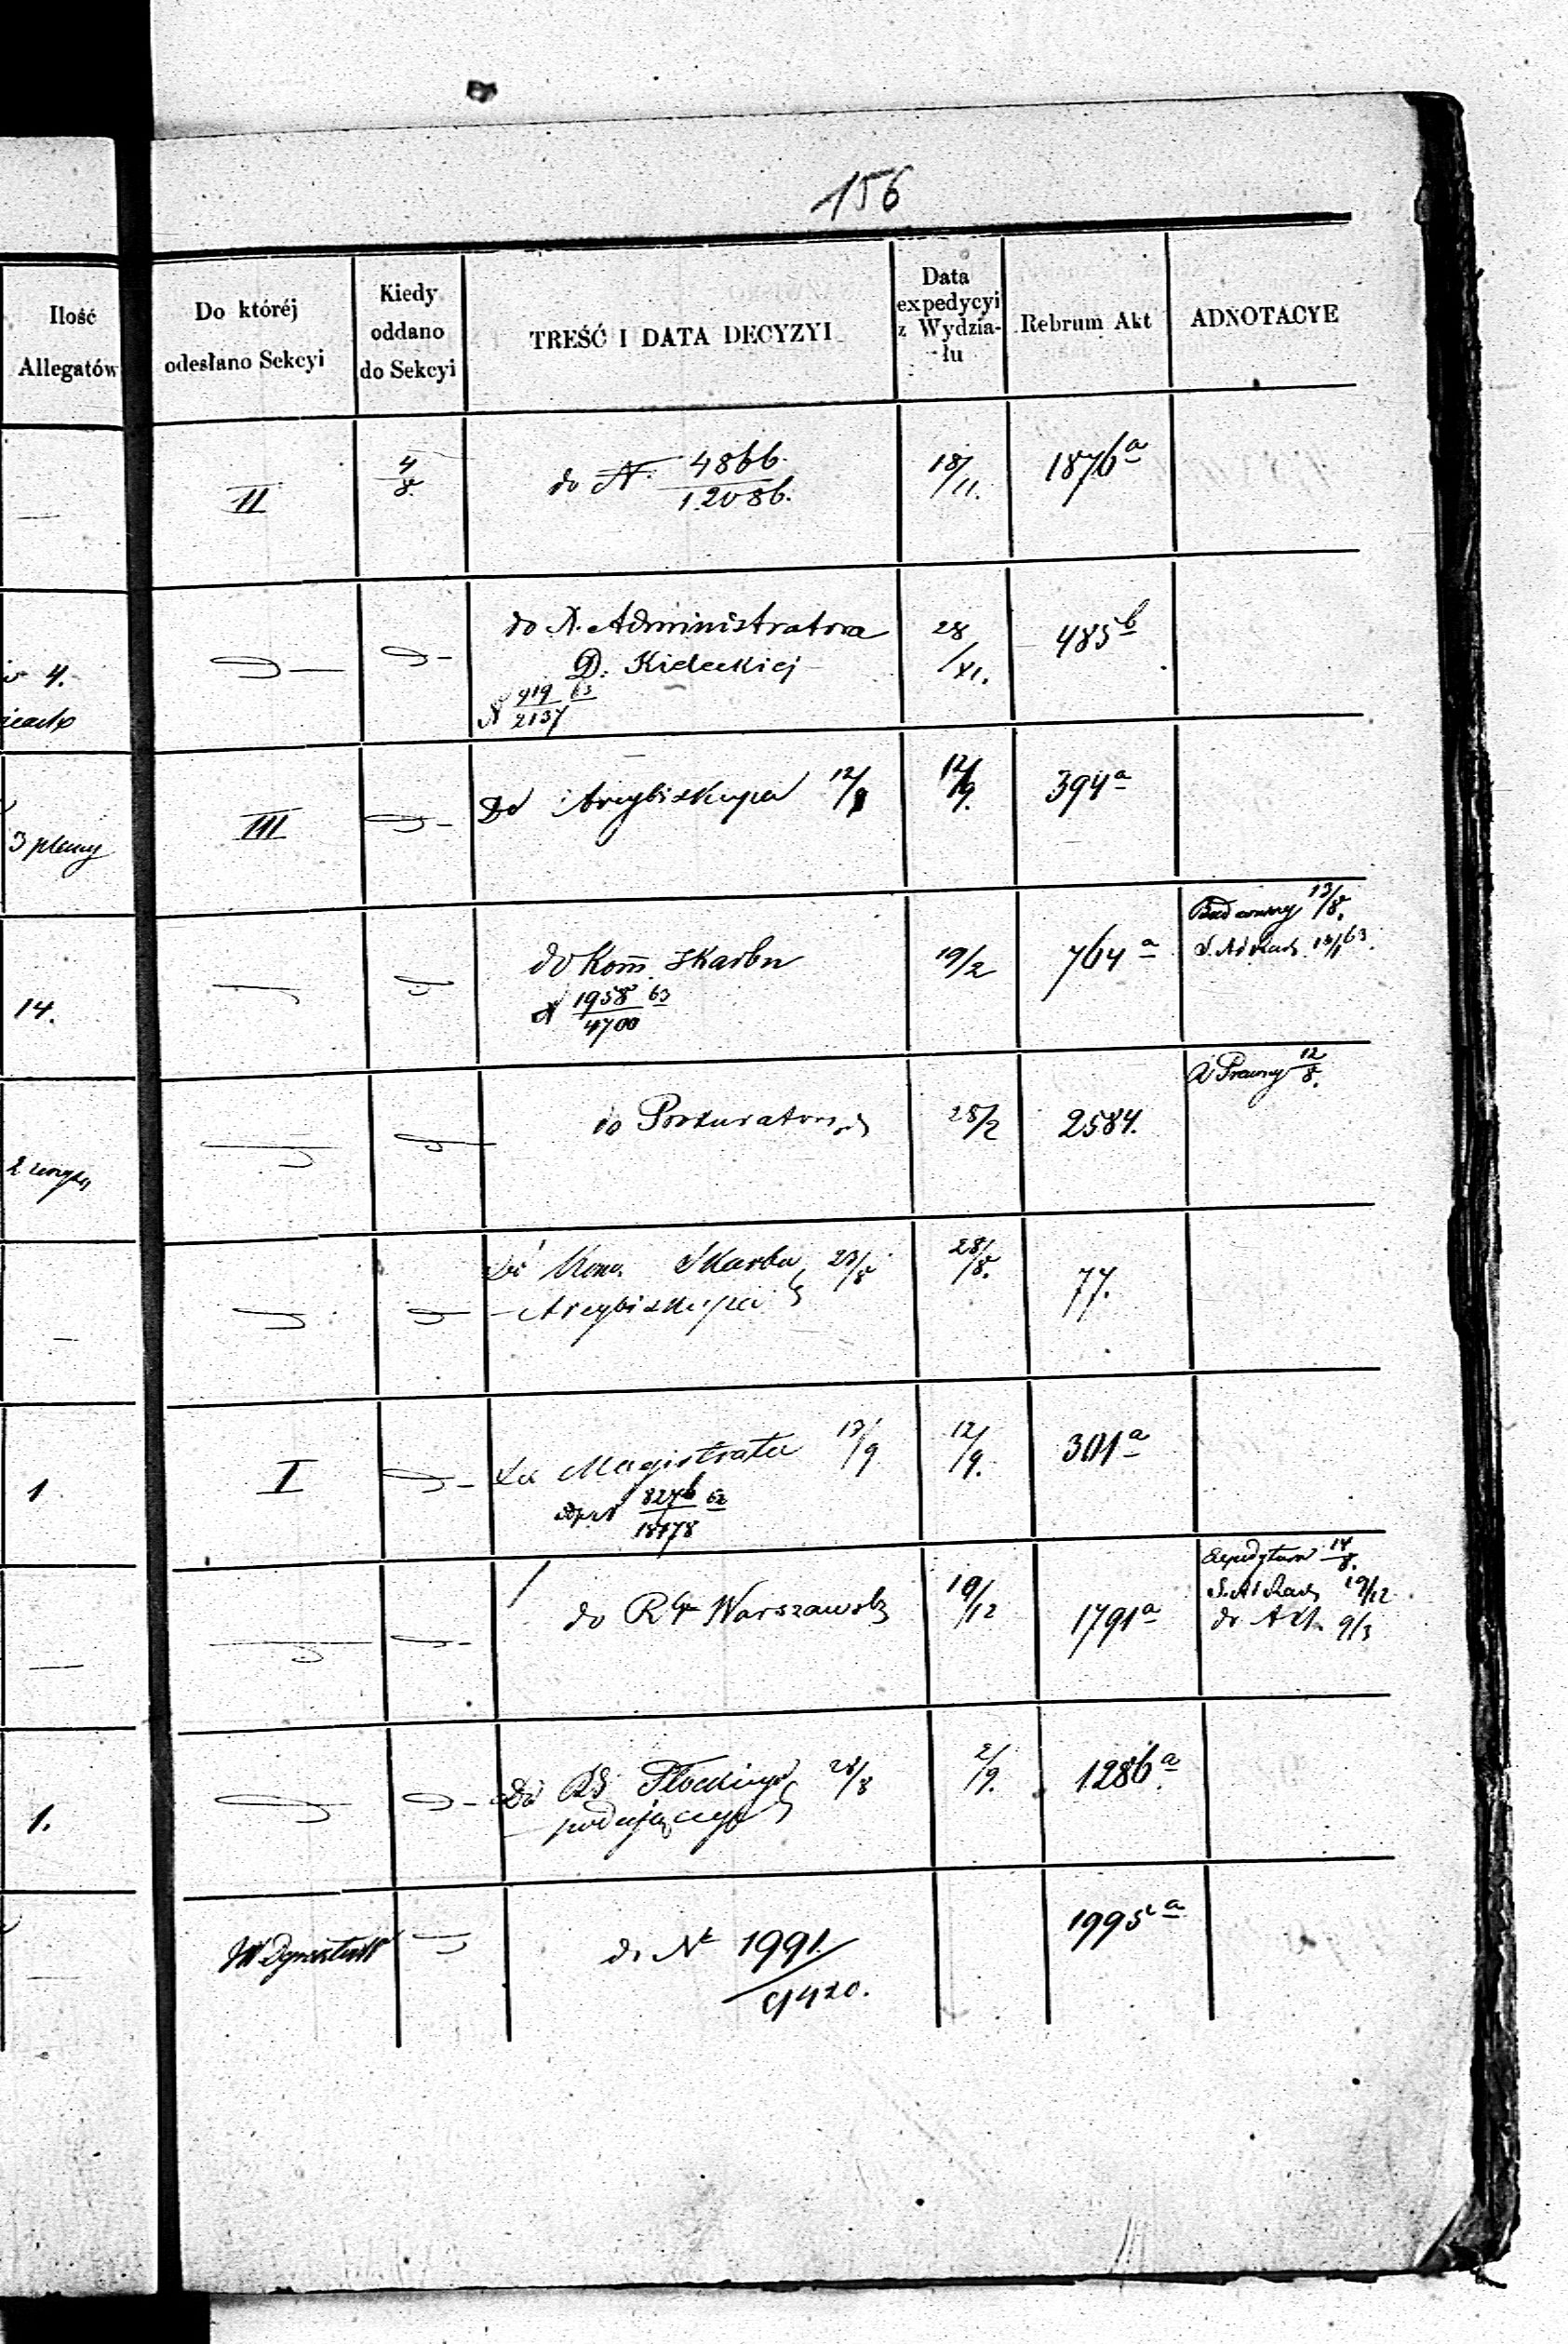 156
Ilość
Allegatów
Do któréj
odesłano Sekcyi
Kiedy
oddano
do Sekcyi
TREŚĆ I DATA DECYZYI
Data
expedycyi
z Wydzia-
łu
Rebrum Akt
ADNOTACYE
—
II
4/8.
do N. 4866./12086.
18/11.
1876 a
4.
do A. Administratora
D. Kieleckiej
N 919/2137 63
28/XI.
485 b
3 plany
III
Do Arcybiskupa 12/9
12/9.
394 a
14.
do Kom. Skarbu
N 1958/4700 63
19/2
764 a
13/8.
63.
2
do Prokuratora
28/2
2584.
Prawny 12/8.
—
Do Kom. Skarbu 23/8
Arcybiskupa
28/8.
77.
1
I
Do Magistratu 13/9
N 8276/18178 62
12/9.
301 a
—
do RG Warszawsk
19/12
1791 a
14/8.
19/12
do Akt. 9/3
1.
Do RG Płockiego 28/8
podającego
2/9.
1286 a
—
do Nr 1991./9420.
1995 a